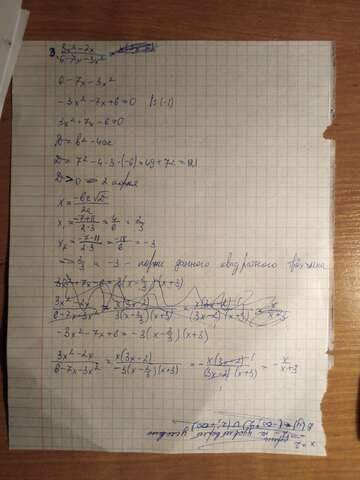 3. (3x²-2x)/(6-7x-3x²) =
6-7x-3x²
-3x²-7x+6=0 |·(-1)
3x²+7x-6=0
D=b²-4ac
D=7²-4·3·(-6)=49+72=121
D>0 => 2 корня
x=(-b±√D)/2a
x₁=(-7+11)/(2·3)=4/6=2/3
x₂=(-7-11)/(2·3)=-18/6=-3
=> 2/3 и -3 - корни данного квадратного трёхчлена
-3x²-7x+6=-3(x-2/3)(x+3)
(3x²-2x)/(6-7x-3x²)=x(3x-2)/(-3(x-2/3)(x+3))=-x(3x-2)/((3x-2)(x+3))=-x/(x+3)